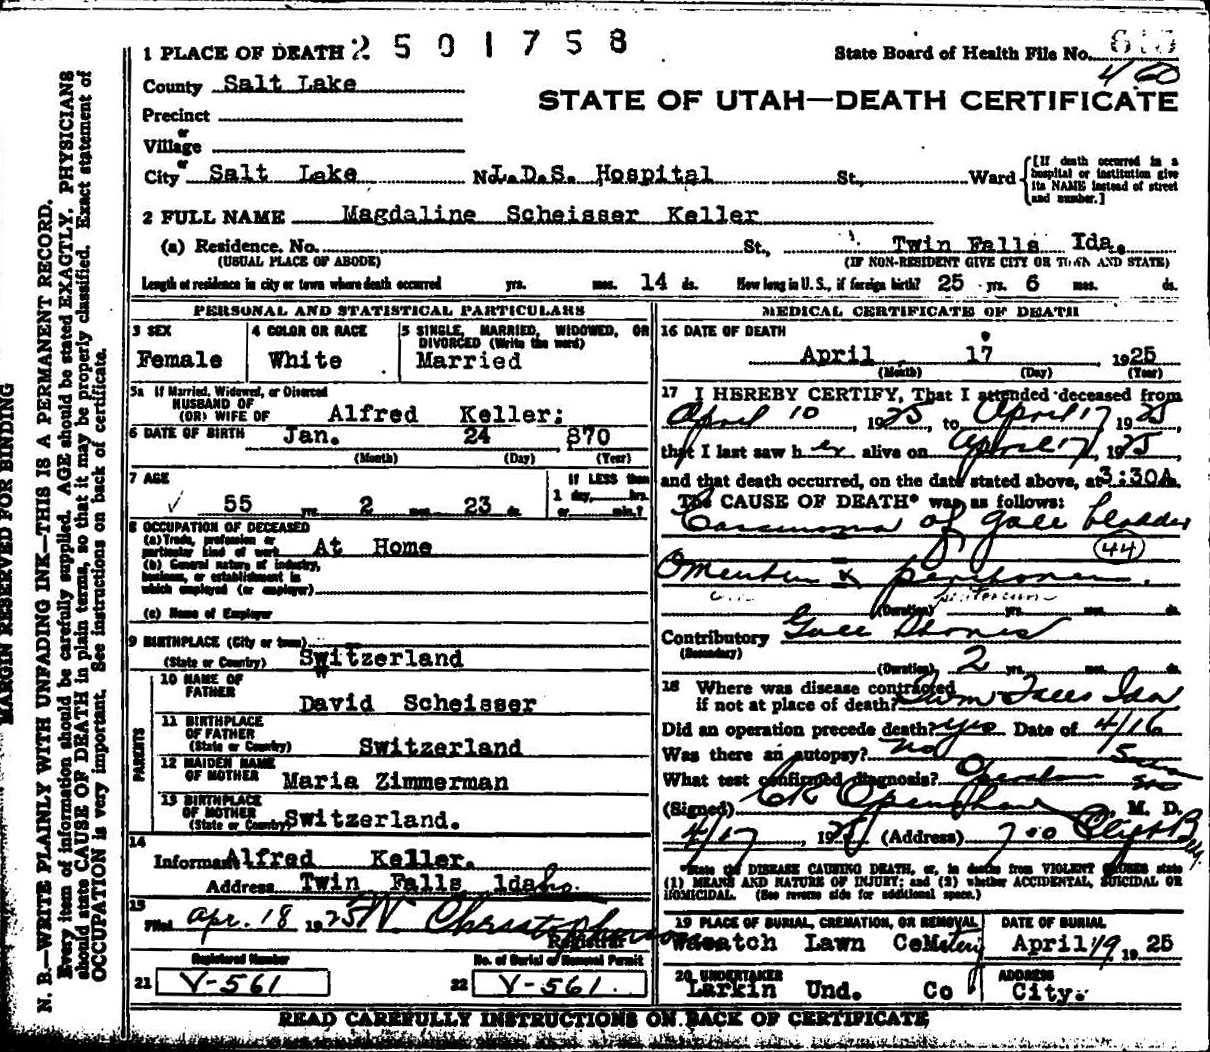 MARGIN RESERVED FOR BINDING
N. B.—WRITE PLAINLY WITH UNFADING INK—THIS IS A PERMANENT RECORD.
Every item of information should be carefully supplied. AGE should be stated EXACTLY. PHYSICIANS
should state CAUSE OF DEATH in plain terms, so that it may be properly classified. Exact statement of
OCCUPATION is very important. See instructions on back of certificate.
1 PLACE OF DEATH 2501758
State Board of Health File No.
460
County Salt Lake
STATE OF UTAH—DEATH CERTIFICATE
Precinct
or
Village
or
City Salt Lake No. L.D.S. Hospital St., Ward
[If death occurred in a
hospital or institution give
its NAME instead of street
and number.]
2 FULL NAME Magdaline Scheisser Keller
(a) Residence. No. St., Twin Falls Ida.
(USUAL PLACE OF ABODE) (IF NON-RESIDENT GIVE CITY OR TOWN AND STATE)
Length of residence in city or town where death occurred yrs. mos. 14 ds. How long in U. S., if foreign birth? 25 yrs. 6 mos. ds.
PERSONAL AND STATISTICAL PARTICULARS
3 SEX
Female
4 COLOR OR RACE
White
5 SINGLE, MARRIED, WIDOWED, OR
DIVORCED (Write the word)
Married
5a If Married, Widowed, or Divorced
HUSBAND OF
(OR) WIFE OF Alfred Keller;
6 DATE OF BIRTH Jan. 24 870
(Month) (Day) (Year)
7 AGE
55 yrs. 2 mos. 23 ds.
If LESS than
1 day, hrs.
or min.?
8 OCCUPATION OF DECEASED
(a) Trade, profession or
particular kind of work At Home
(b) General nature of industry,
business, or establishment in
which employed (or employer)
(c) Name of Employer
9 BIRTHPLACE (City or town)
(State or Country) Switzerland
PARENTS
10 NAME OF
FATHER
David Scheisser
11 BIRTHPLACE
OF FATHER
(State or Country) Switzerland
12 MAIDEN NAME
OF MOTHER Maria Zimmerman
13 BIRTHPLACE
OF MOTHER
(State or Country) Switzerland.
14
Informant Alfred Keller.
Address Twin Falls Idaho.
15
Filed Apr. 18 1925 W. Christopherson
Registrar
Registered Number
21 V-561
No. of Burial or Removal Permit
22 V-561.
MEDICAL CERTIFICATE OF DEATH
16 DATE OF DEATH
April 17 1925
(Month) (Day) (Year)
17 I HEREBY CERTIFY, That I attended deceased from
April 10, 1925, to April 17, 1925,
that I last saw her alive on April 17, 1925,
and that death occurred, on the date stated above, at 3:30A m.
The CAUSE OF DEATH* was as follows:
Carcinoma of gall bladder
44
Omentum & peritoneum.
(Duration) yrs. mos. ds.
Contributory Gall Stones
(Secondary)
(Duration) 2 yrs. mos. ds.
18 Where was disease contracted
if not at place of death? Twin Falls Ida
Did an operation precede death? yes Date of 4/16
Was there an autopsy? no
What test confirmed diagnosis? Operation
(Signed) CR Openshaw M. D.
4/17, 1925 (Address) 700 Clift Bldg.
*State the DISEASE CAUSING DEATH, or, in deaths from VIOLENT CAUSES state
(1) MEANS AND NATURE OF INJURY; and (2) whether ACCIDENTAL, SUICIDAL OR
HOMICIDAL. (See reverse side for additional space.)
19 PLACE OF BURIAL, CREMATION, OR REMOVAL
Wasatch Lawn Cemetery
DATE OF BURIAL
April 19 1925
20 UNDERTAKER
Larkin Und. Co
ADDRESS
City.
READ CAREFULLY INSTRUCTIONS ON BACK OF CERTIFICATE